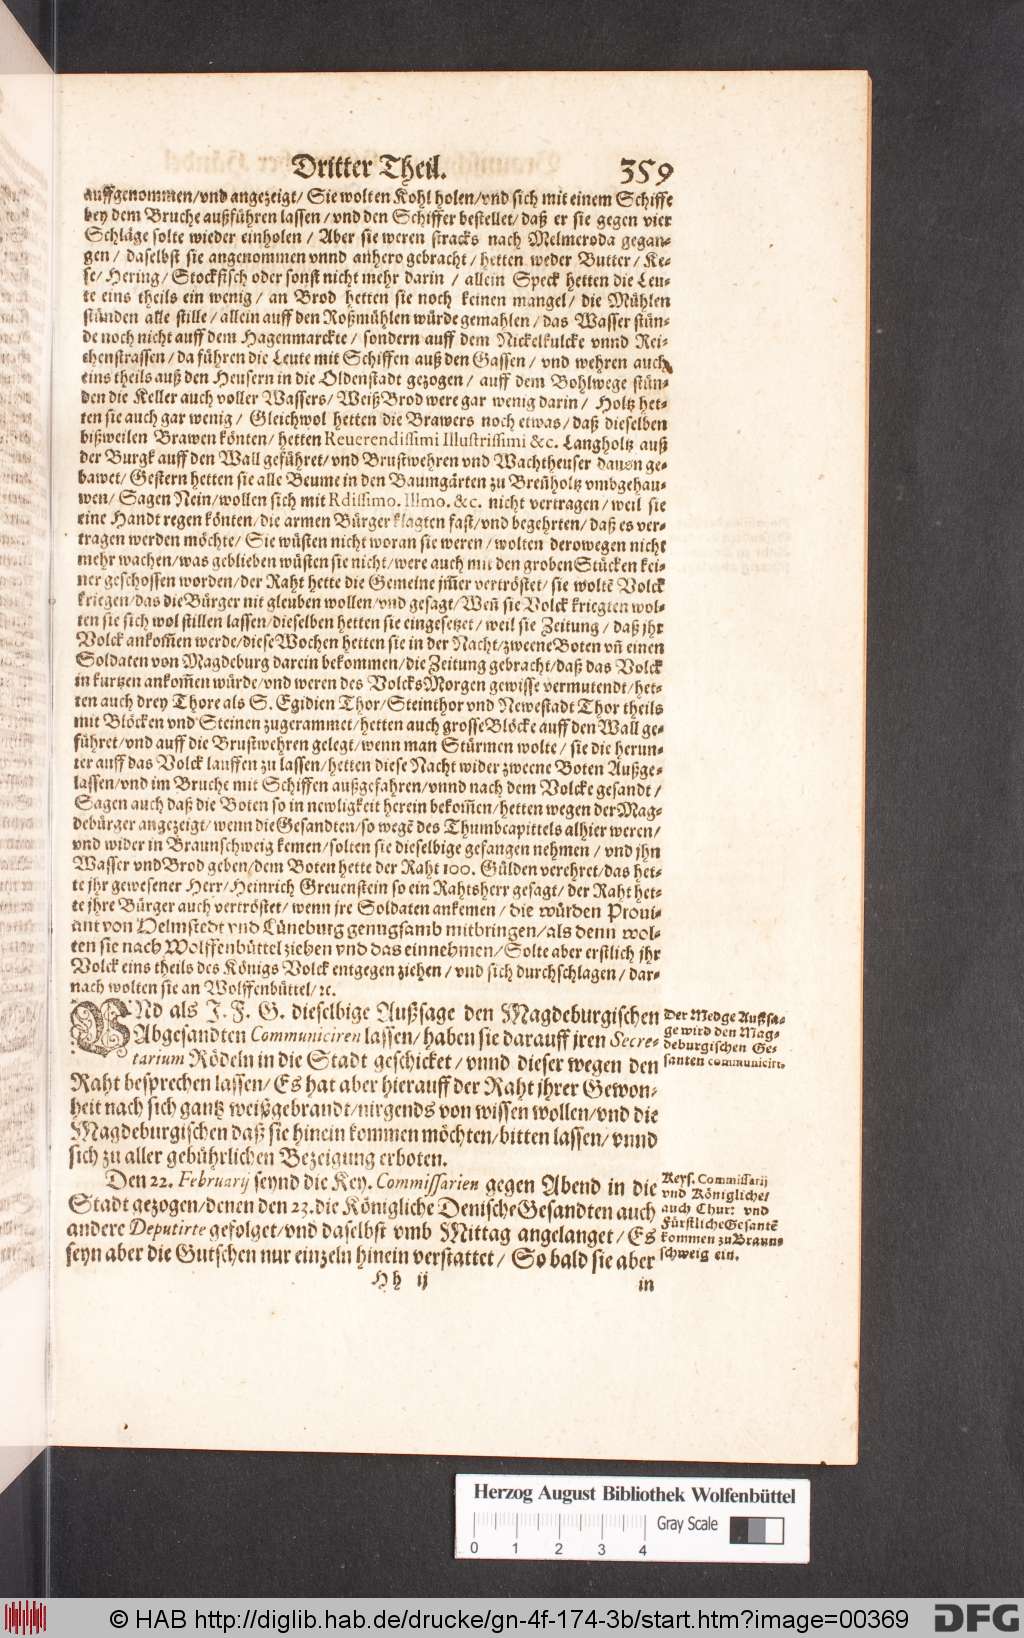 Dritter Theil. 359
auffgenommen/vnd angezeigt/ Sie wolten Kohl holen/vnd sich mit einem Schiffe
bey dem Bruche außführen lassen / vnd den Schiffer bestellet/ daß er sie gegen vier
Schläge solte wieder einholen / Aber sie weren stracks nach Melmeroda gegan-
gen / daselbst sie angenommen vnnd anhero gebracht / hetten weder Butter / Ke-
se / Hering / Stockfisch oder sonst nicht mehr darin / allein Speck hetten die Leu-
te eins theils ein wenig / an Brod hetten sie noch keinen mangel / die Mühlen
stünden alle stille / allein auff den Roßmühlen würde gemahlen / das Wasser stün-
de noch nicht auff dem Hagenmarckte / sondern auff dem Nickelkulcke vnnd Rei-
chenstrassen / da führen die Leute mit Schiffen auß den Gassen / vnd wehren auch
eins theils auß den Heusern in die Oldenstadt gezogen / auff dem Bohlwege stün-
den die Keller auch voller Wassers / Weiß Brod were gar wenig darin / Holtz het-
ten sie auch gar wenig / Gleichwol hetten die Brawers noch etwas / daß dieselben
bißweilen Brawen könten / hetten Reuerendissimi Illustrissimi &c. Langholtz auß
der Burgk auff den Wall geführet / vnd Brustwehren vnd Wachtheuser dauon ge-
bawet / Gestern hetten sie alle Beume in den Baumgärten zu Breñholtz vmbgehau-
wen / Sagen Nein / wollen sich mit Rdissimo. Illmo. &c. nicht vertragen / weil sie
eine Handt regen könten / die armen Bürger klagten fast / vnd begehrten / daß es ver-
tragen werden möchte / Sie wüsten nicht woran sie weren / wolten derowegen nicht
mehr wachen / was geblieben wüsten sie nicht / were auch mit den groben Stücken kei-
ner geschossen worden / der Raht hette die Gemeine jm̃er vertröstet / sie woltẽ Volck
kriegen / das die Bürger nit gleuben wollen / vnd gesagt / Weñ sie Volck kriegten wol-
ten sie sich wol stillen lassen / dieselben hetten sie eingesetzet / weil sie Zeitung / daß jhr
Volck ankom̃en werde / diese Wochen hetten sie in der Nacht / zweene Boten vñ einen
Soldaten von Magdeburg darein bekommen / die Zeitung gebracht / daß das Volck
in kurtzen ankom̃en würde / vnd weren des Volcks Morgen gewisse vermutendt / het-
ten auch drey Thore als S. Egidien Thor / Steinthor vnd Newestadt Thor theils
mit Blöcken vnd Steinen zugerammet / hetten auch grosse Blöcke auff den Wall ge-
führet / vnd auff die Brustwehren gelegt / wenn man Stürmen wolte / sie die herun-
ter auff das Volck lauffen zu lassen / hetten diese Nacht wider zweene Boten Außge-
lassen / vnd im Bruche mit Schiffen außgefahren / vnnd nach dem Volcke gesandt /
Sagen auch daß die Boten so in newligkeit herein bekom̃en / hetten wegen der Mag-
debürger angezeigt / wenn die Gesandten / so wegẽ des Thumbcapittels alhier weren /
vnd wider in Braunschweig kemen / solten sie dieselbige gefangen nehmen / vnd jhn
Wasser vnd Brod geben / dem Boten hette der Raht 100. Gülden verehret / das het-
te jhr gewesener Herr / Heinrich Greuenstein so ein Rahtsherr gesagt / der Raht het-
te jhre Bürger auch vertröstet / wenn jre Soldaten ankemen / die würden Proui-
ant von Helmstedt vnd Lüneburg genugsamb mitbringen / als denn wol-
ten sie nach Wolffenbüttel ziehen vnd das einnehmen / Solte aber erstlich jhr
Volck eins theils des Königs Volck entgegen ziehen / vnd sich durchschlagen / dar-
nach wolten sie an Wolffenbüttel / ꝛc.
VNd als J. F. G. dieselbige Außsage den Magdeburgischen
Abgesandten Communiciren lassen / haben sie darauff jren Secre-
tarium Rödeln in die Stadt geschicket / vnnd dieser wegen den
Raht besprechen lassen / Es hat aber hierauff der Raht jhrer Gewon-
heit nach sich gantz weißgebrandt / nirgends von wissen wollen / vnd die
Magdeburgischen daß sie hinein kommen möchten / bitten lassen / vnnd
sich zu aller gebührlichen Bezeigung erboten.
Der Medge Außsa-
ge wird den Mag-
deburgischen Ge-
santen communicirt.
Den 22. Februarij seynd die Key. Commissarien gegen Abend in die
Stadt gezogen / denen den 23. die Königliche Denische Gesandten auch
andere Deputirte gefolget / vnd daselbst vmb Mittag angelanget / Es
seyn aber die Gutschen nur einzeln hinein verstattet / So bald sie aber
Keys. Commissarij
vnd Königliche/
auch Chur: vnd
Fürstliche Gesantẽ
kommen zu Braun-
schweig ein.
Hh ij in
Herzog August Bibliothek Wolfenbüttel
Gray Scale
0 1 2 3 4
© HAB http://diglib.hab.de/drucke/gn-4f-174-3b/start.htm?image=00369 DFG